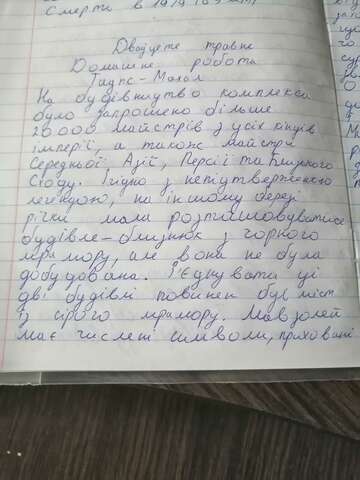 смерти в 1919
Двадцяте травня
Домашня робота
Тадж-Махал
На будівництво комплексу
було запрошено більше
20000 майстрів з усіх кінців
імперії, а також майстри
Середньої Азії, Персії та Близького
Сходу. Згідно з непідтвердженою
легендою, на іншому березі
річки мала розташовуватися
будівля-близнюк з чорного
мрамору, але вона не була
добудована. З'єднувати ці
дві будівлі повинен був міст
із сірого мрамору. Мавзолей
має числені символи, приховані